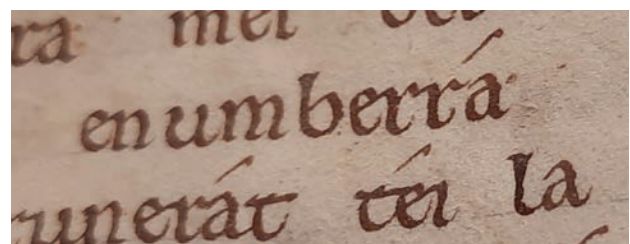 ra mei
enumberrá
unerát téi la